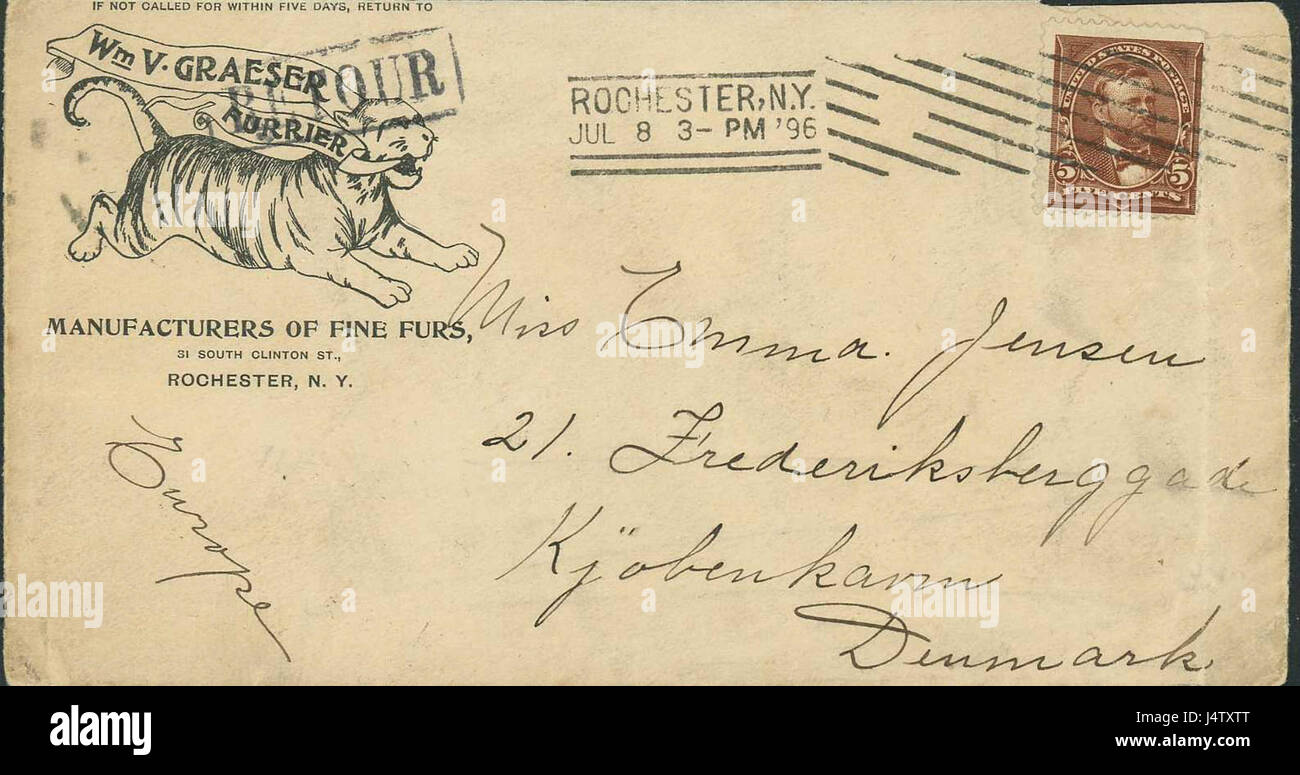 IF NOT CALLED FOR WITHIN FIVE DAYS, RETURN TO
Wm V. GRAESER
FURRIER
RETOUR
MANUFACTURERS OF FINE FURS,
31 SOUTH CLINTON ST.,
ROCHESTER, N. Y.
ROCHESTER, N.Y.
JUL 8 3- PM '96
UNITED STATES POSTAGE
5 5
FIVE CENTS
Miss Emma. Jensen
21. Frederiksberggade
Kjöbenhavn
Denmark.
Europe
alamy
alamy
Image ID: J4TXTT
www.alamy.com